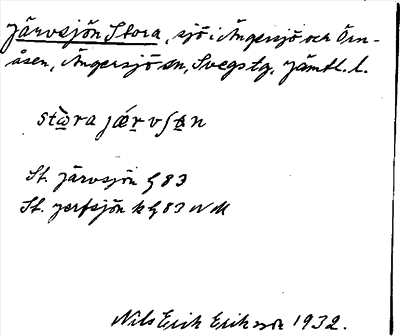 Järvsjön Stora, sjö i Ängersjö och Örn-
åsen, Ängersjö sn, Svegs tg, Jämtl. l.
stὼra jǽr̲vʃɵ̲n
St. Järvsjön G 83
St. Jerfsjön k G 83 NM
Nils Erik Eriksson 1932.